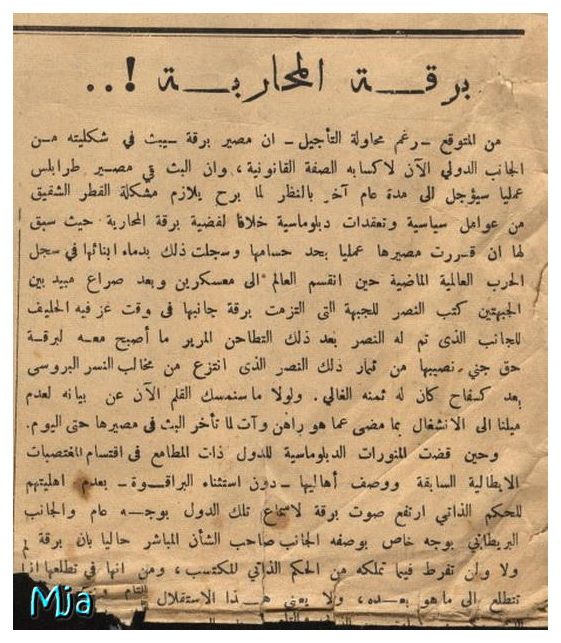 برقـــة المحاربـــة !..
من المتوقع ـ رغم محاولة التأجيل ـ ان مصير برقة سيبث في شكليته مـن
الجانب الدولي الآن لاكسابه الصفة القانونية ، وان البث في مصـير طرابلس
عمليا سيؤجل الى مدة عام آخر بالنظر لما برح يلازم مشكلة القطر الشقيق
من عوامل سياسية وتعقدات دبلوماسية خلافا لقضية برقة المحاربة حيث سبق
لها ان قـررت مصيرها عمليا بحد حسامها وسجلت ذلك بدماء ابنائها في سجل
الحرب العالمية الماضية حين انقسم العالم الى معسكرين وبعد صراع مبيد بين
الجبهتين كتب النصر للجبهة التى التزمت برقة جانبها فى وقت عز فيه الحليف
للجانب الذى تم له النصر بعد ذلك التطاحن المرير ما أصبح معـه لبرقـة
حق جني نصيبها من ثمار ذلك النصر الذى انتزع من مخالب النسر البروسى
بعد كـفاح كان له ثمنه الغالي . ولولا ما سنمسك القلم الآن عن بيانه لعدم
ميلنا الى الانشغال بما مضى عما هو راهن وآت لما تأخر البث فى مصيرها حتى اليوم .
وحين قضت المنورات الدبلوماسية للدول ذات المطامع فى اقتسام المغتصبات
الايطالية السابقة ووصف أهاليها ـ دون استثناء البراقـوة ـ بعدم اهليتهم
للحكم الذاتي ارتفع صوت برقة لاسماع تلك الدول بوجـه عام والجانب
البريطاني بوجه خاص بوصفه الجانب صاحب الشأن المباشر حاليا بان برقة لم
ولا ولن تفرط فيما تملكه من الحكم الذاتي المكتسب ، ومن انها فى تطلعها انما
تتطلع الى ما هو بعـده ، ولا يعنى هـذا الاستقلال
Mja